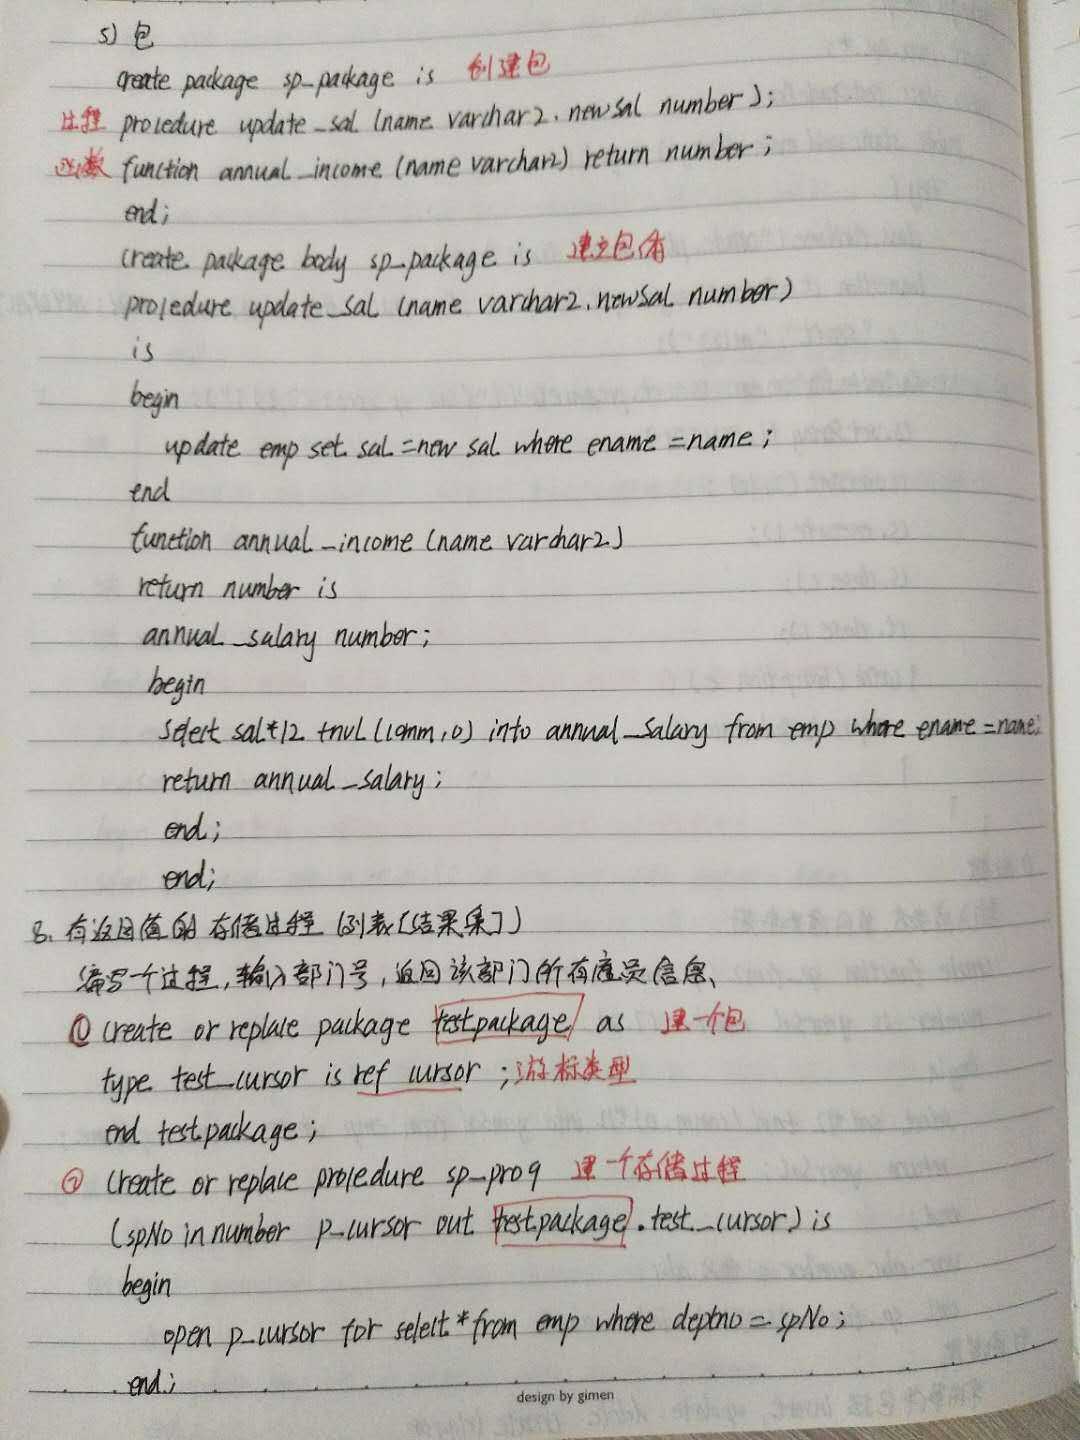 5) 包
create package sp_package is 创建包
过程 procedure update_sal (name varchar2, newsal number);
函数 function annual_income (name varchar2) return number;
end;
create package body sp_package is 建立包体
procedure update_sal (name varchar2, newsal number)
is
begin
update emp set sal = new sal where ename = name;
end
function annual_income (name varchar2)
return number is
annual_salary number;
begin
select sal*12 +nvl(comm,0) into annual_salary from emp where ename = name;
return annual_salary;
end;
end;
8. 有返回值的存储过程 (列表[结果集])
编写一个过程,输入部门号,返回该部门所有雇员信息、
① create or replace package testpackage as 建一个包
type test_cursor is ref cursor ; 游标类型
end testpackage;
② create or replace procedure sp_pro9 建一个存储过程
(spNo in number p_cursor out testpackage.test_cursor) is
begin
open p_cursor for select * from emp where deptno = spNo;
end;
design by gimen